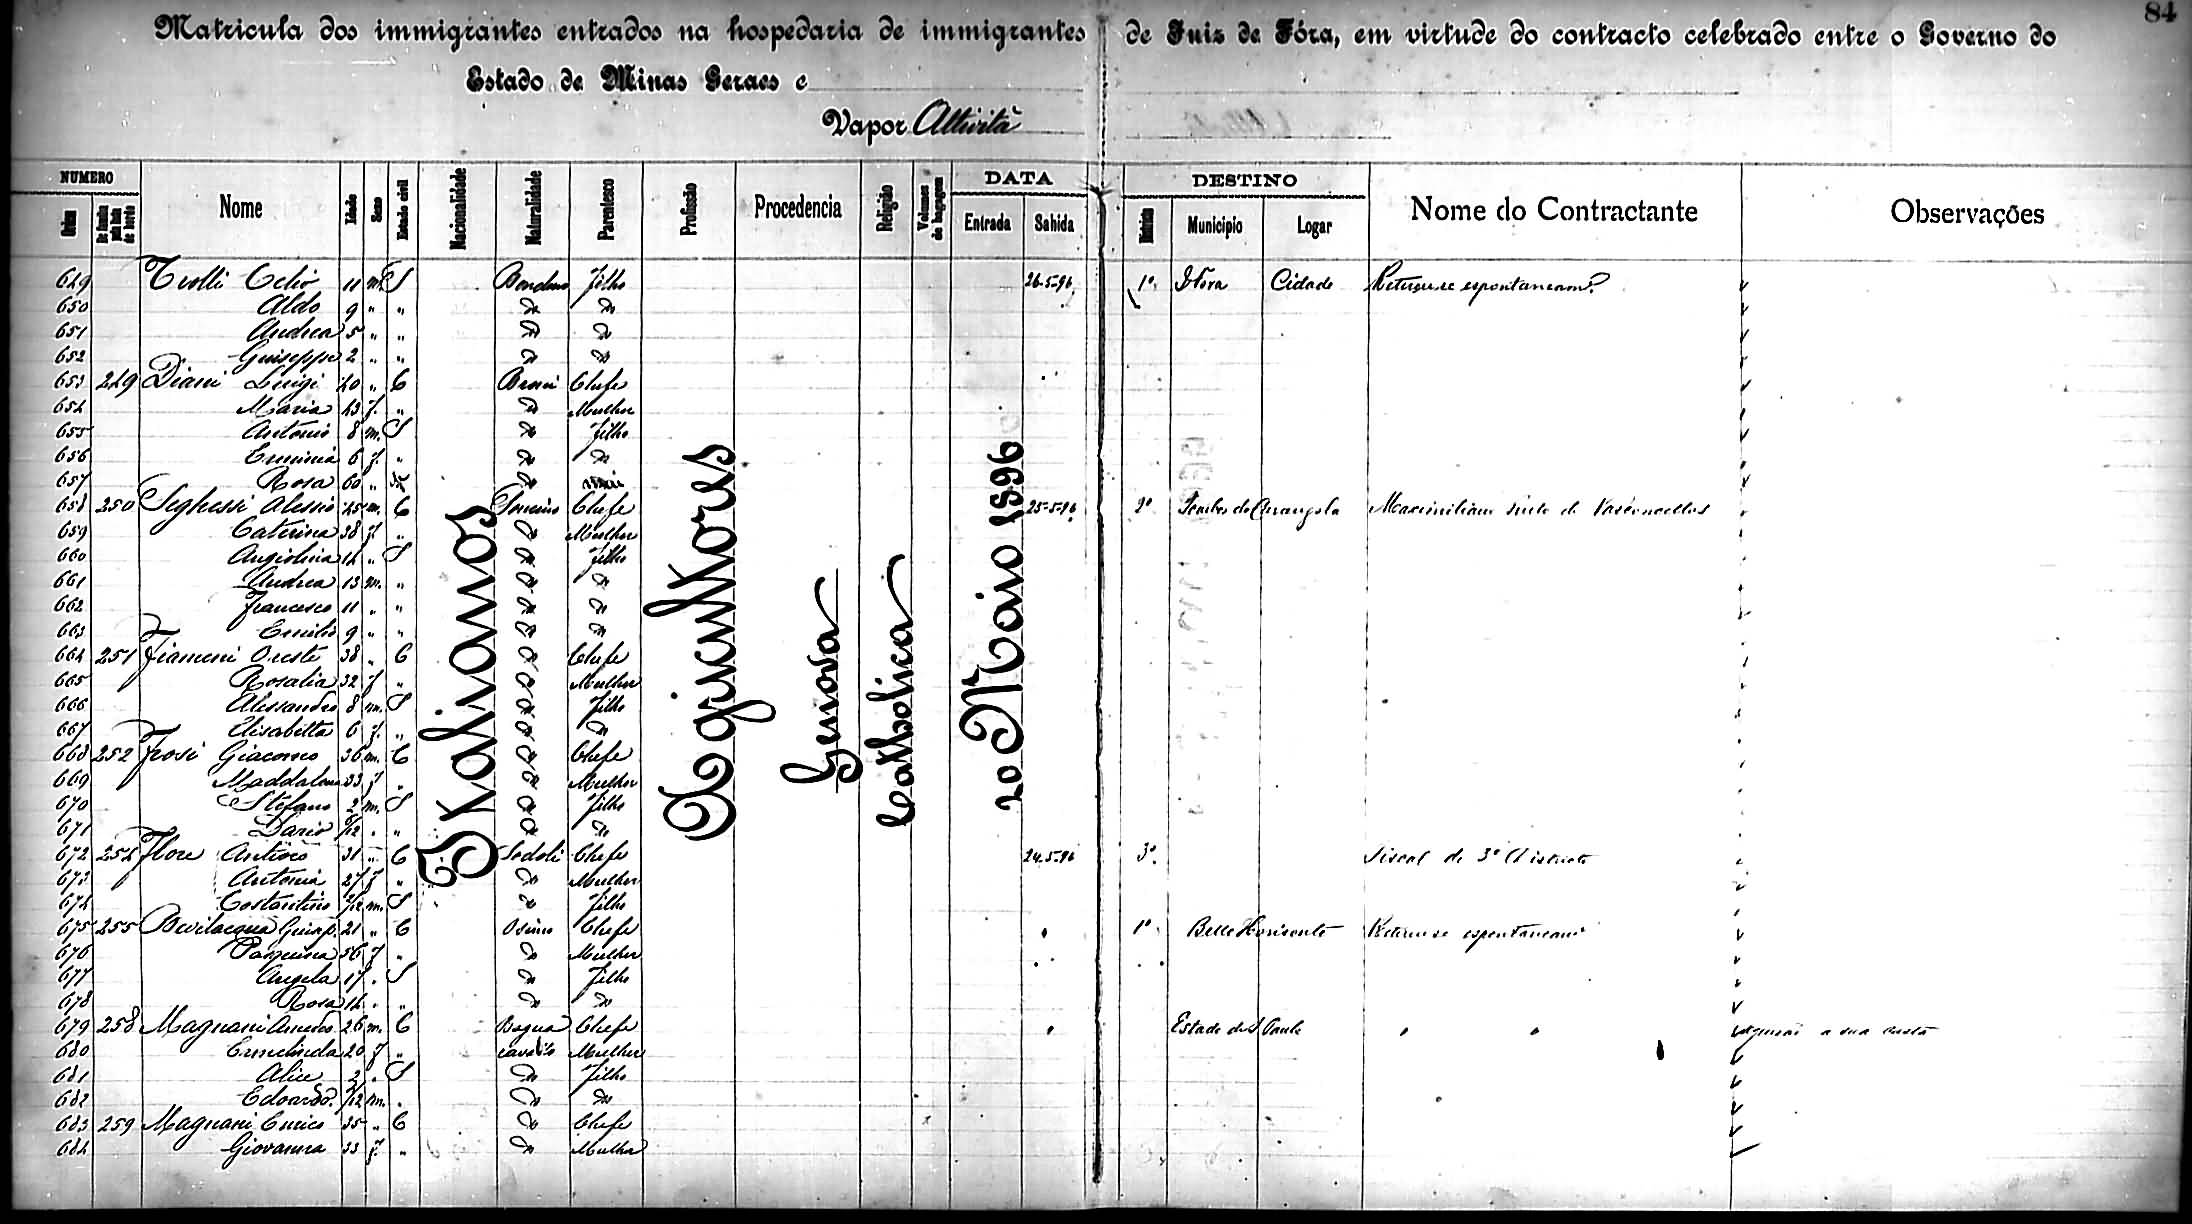 84
Matricula dos immigrantes entrados na hospedaria de immigrantes de Juiz de Fóra, em virtude do contracto celebrado entre o Governo do
Estado de Minas Geraes e
Vapor Attività
NUMERO DATA DESTINO
Ordem Nome Idade Sexo Estado civil Nacionalidade Naturalidade Parentesco Profissão Procedencia Religião Volumes de bagagem Entrada Sahida Districto Municipio Logar Nome do Contractante Observações
Italianos
Agricultores
Genova
Catholica
20 Maio 1896
649 Trolli 11 m. S Bondeno Filho 26-5-96 1º J Fora Cidade Retirou-se espontaneamte
650 Aldo 9 " " " "
651 Andrea 5 " " " "
652 Guiseppe 2 " " " "
653 249 Diani Luigi 40 " C Chefe
654 Maria 43 f. " " Mulher
655 Antonio 8 m. S " Filho
656 Erminia 6 f. " " "
657 Rosa 60 " "
658 250 Seghessi Alessio 45 m. C Soncino Chefe 25-5-96 2º Tombos do Carangola Vasconcellos
659 Caterina 38 f. " " Mulher
660 Angiolina 14 " S " Filho
661 Andrea 13 m. " " "
662 Francesco 11 " " " "
663 Emilio 9 " " " "
664 251 Fiameni Oreste 38 " C " Chefe
665 Rosalia 32 f " " Mulher
666 Alessandro 8 m. S " Filho
667 Elisabetta 6 f. " " "
668 252 Frosi Giacomo 36 m. C " Chefe
669 Maddalena 33 f " " Mulher
670 Stefano 2 m. S " Filho
671 Dario /12 " " " "
672 254 Flore Antioco 31 " C Chefe 24-5-96 3º Fiscal do 3º Districto
673 Antonia 27 f " " Mulher
674 Costantino /12 m. S " Filho
675 255 Bevilacqua Giusep. 21 " C Osimo Chefe " 1º Bello Horisonte Retirou-se espontaneamte
676 Pasquina 56 f " " Mulher
677 Angela 17 " S " Filho
678 Rosa 14 " " " "
679 258 Magnani Amedeo 26 m. C Bagna Chefe " Estado de S Paulo " " a sua custa
680 Ermelinda 20 f " cavallo Mulher
681 Alice 2 " S " Filho
682 Edoardo /12 m. " " "
683 259 Magnani Enrico 35 " C " Chefe
684 Giovanna 33 f. " " Mulher